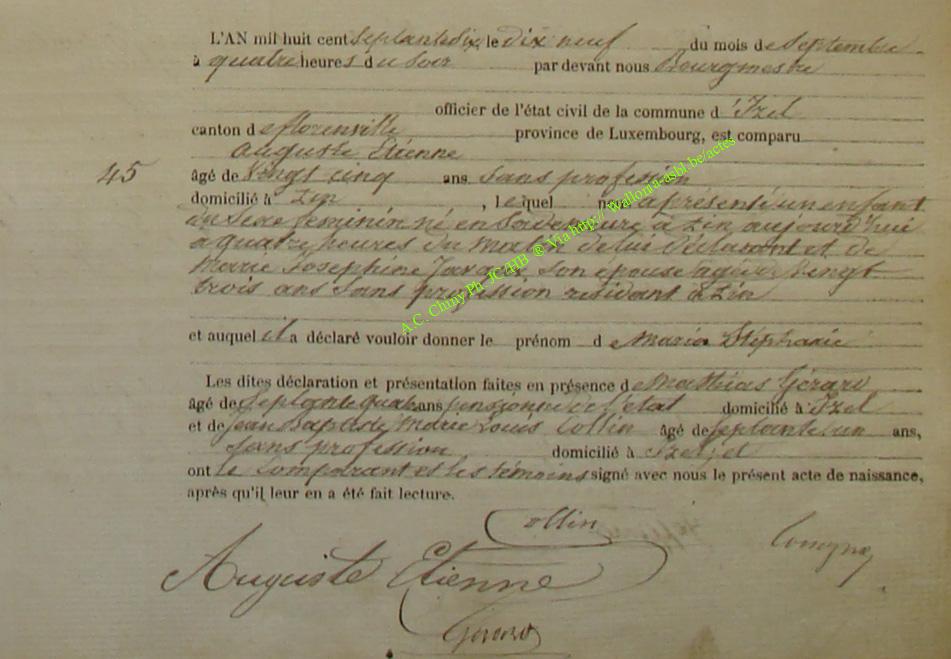 L'AN mil huit cent septante six, le dix neuf du mois de septembre
à quatre heures du soir par devant nous Bourgmestre
officier de l'état civil de la commune d'Izel
canton de florenville province de Luxembourg, est comparu
Auguste Etienne
45 âgé de vingt cinq ans sans profession
domicilié à , lequel nous a présenté un enfant
du sexe feminin né en sa demeure à aujourd'hui
a quatre heures du matin de lui déclarant et de
Marie Josephine son épouse agée de vingt
trois ans sans profession résidant à
et auquel il a déclaré vouloir donner le prénom de Maria Stéphanie
Les dites déclaration et présentation faites en présence de Mathias Gérard
âgé de septante quatre ans pensionné de l'etat domicilié à Izel
et de Jean Baptiste Marie Louis Collin âgé de septante un ans,
sans profession domicilié à Izel
ont le comparant et les témoins signé avec nous le présent acte de naissance,
après qu'il leur en a été fait lecture.
Collin
Auguste Etienne
Gérard
A.C. Chiny Ph JC/HB ® Via http// Wallonia-asbl.be/actes